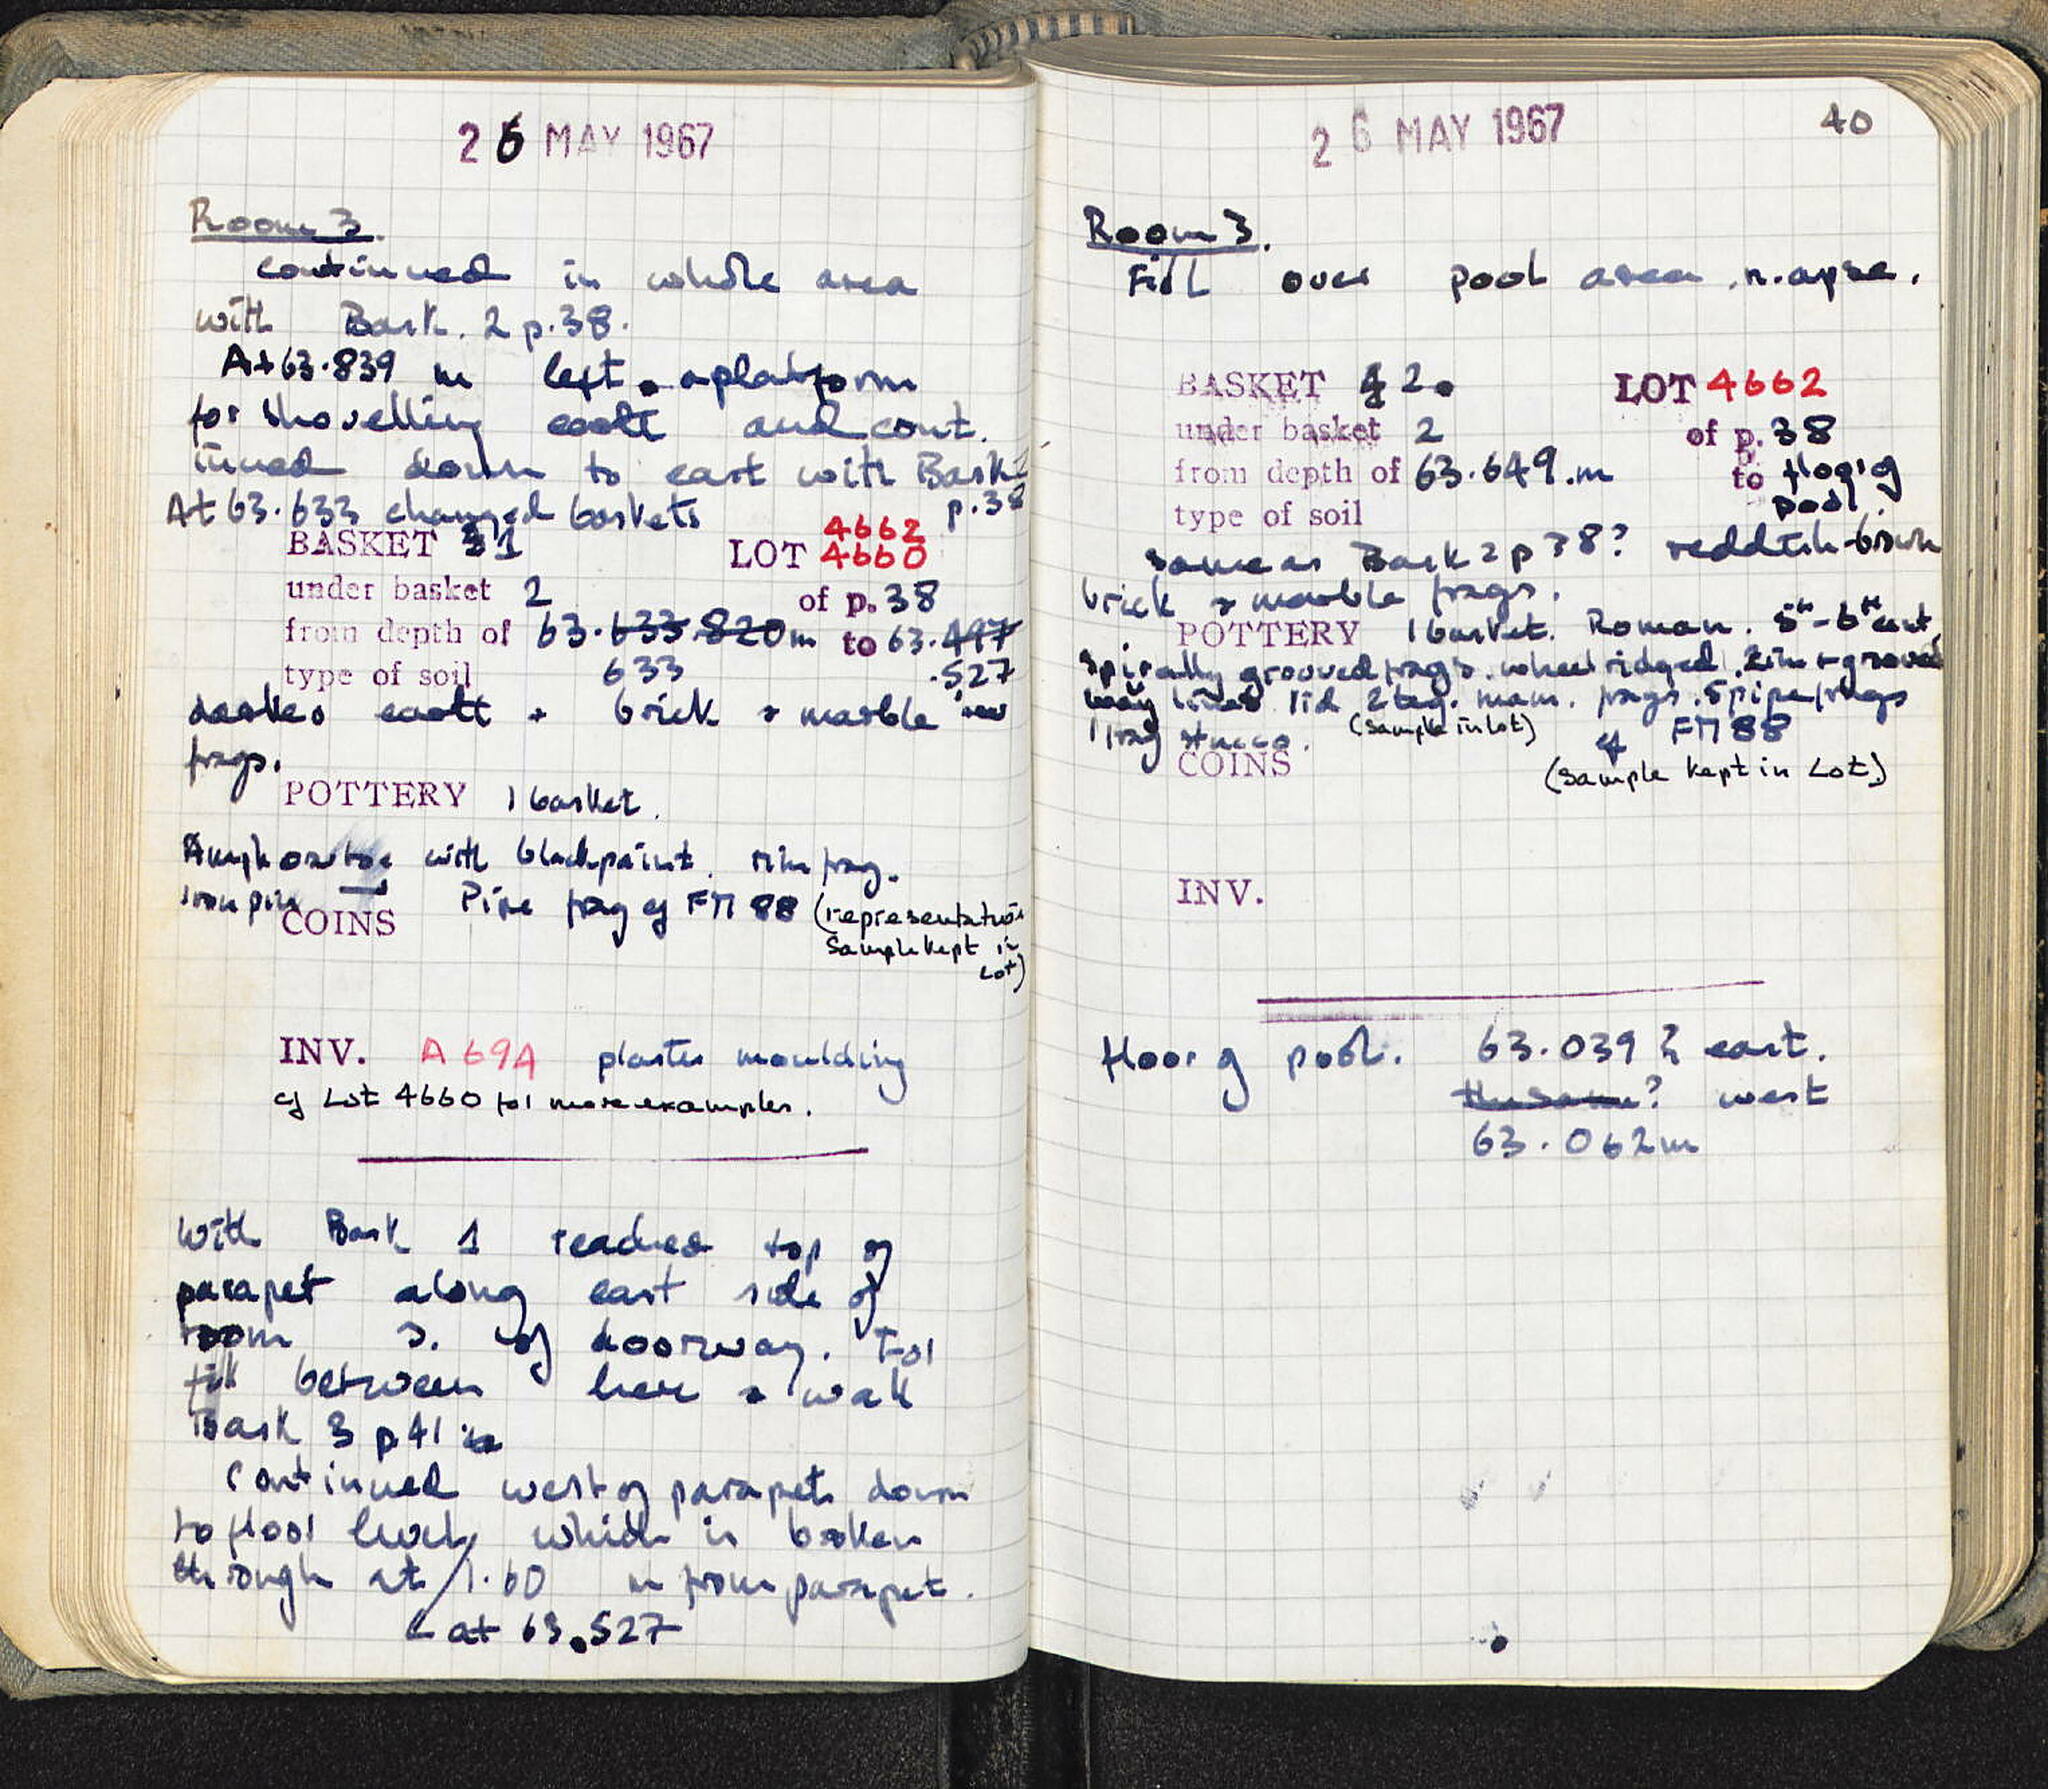 26 MAY 1967
Room 3.
continued in whole area
with Bask. 2 p. 38.
At 63.839 m left a platform
for shovelling earth and cont.
inued down to east with Bask 1
At 63.633 changed baskets p. 38
4662
BASKET 1 LOT 4660
under basket 2 of p. 38
from depth of 63.633 .820 m to 63.497
type of soil 633 .527
darker earth + brick + marble
frags.
POTTERY 1 basket.
with black paint. rim frag.
Iron pin Pipe frag cf FM 88 (representative
COINS sample kept in
Lot)
INV. A 69A plaster moulding
cf Lot 4660 for more examples.
With Bask 1 reached top of
parapet along east side of
room S. of doorway. For
fill between here & wall
Bask 3 p 41
Continued west of parapets down
to floor level, which is broken
through at 1.60 m from parapet.
at 63.527
26 MAY 1967 40
Room 3.
Fill over pool area. n. apse.
BASKET 2. LOT 4662
under basket 2 of p. 38
from depth of 63.649.m to floor of
type of soil pool.
same as Bask 2 p 38? reddish-brown
brick + marble frags.
POTTERY 1 basket. Roman. 5th-6th cent.
spirally grooved frags. wheel ridged.
lid 2 frags. 5 pipe frags
1 frag stucco. (sample in lot) cf FM 88
COINS (sample kept in Lot)
INV.
Floor of pool. 63.039 east.
the same? west
63.062m